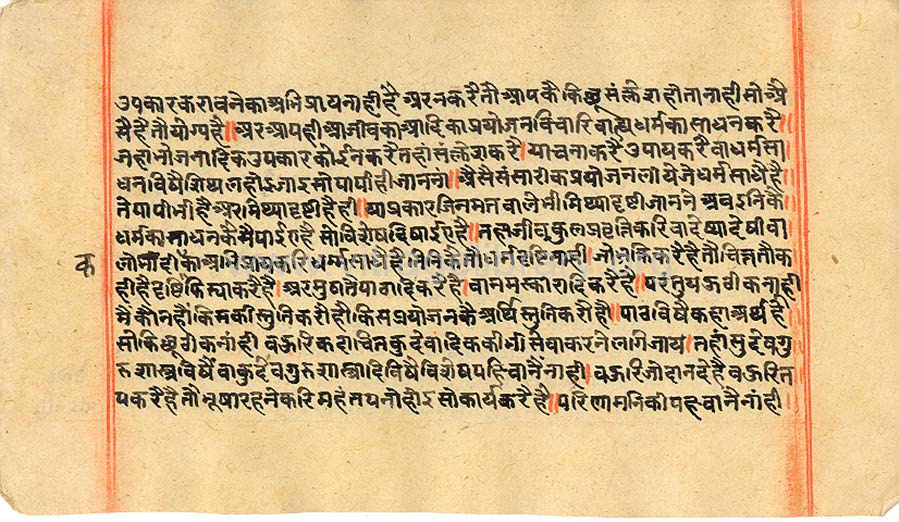 उपकारकरावनेकाअभिप्रायनाहीहै अरनकरैतौआपकैकिछूसंक्लेशहोतानाहीसोअै
सैहैतौयोग्यहै॥अरआपहीआजीवकाआदिकाप्रयोजनविचारिबाह्यधर्मकासाधनकरै॥
जहाभोजनादिकउपकारकोईनकरैतहांसंक्लेशकरै।याचनाकरैउपायकरैवाधर्मसा
धनविषैशिथलहोइजाइसोपापीहीजाननां॥अैसैसंसारीकप्रयोजनलीयेजेधर्मसाधैहै
तेपापीभीहैअरमिथ्यादृष्टीहैही॥याप्रकारजिनमतवालेभीमिथ्यादृष्टीजाननेअबइनिकै
धर्मकासाधनकैसैपाईएहैसोविशेषदिषाईएहै॥तहाजीवकुलप्रवृत्तिकरिवादेष्यादेषीवा
क लोभादीकाअभिप्रायकरिधर्मसाधैहैतिनिकैतौधर्मदृष्टिनाही।जोभक्तिकरैहैतौचित्ततौक
हीहैदृष्टिफिर्याकरैहै।अरमुषतैपाठादिकरैहै।वानमस्कारादिकरैहै॥परंतुयऊठीकनाही
मैंकौनहौंकिसकीस्तुतिकरौहौंकिसप्रयोजनकैअर्थिस्तुतिकरौहौं॥पाठविषैकहाअर्थहै
सोकिछूठीकनांही।बऊरिकदाचितकुदेवादिककीभीसेवाकरनेलागिजाय।तहांसुदेवगु
रुशास्त्रविषैंवाकुदेवगुरुशास्त्रादिविषैविशेषपहिचानैनांही।बऊरिजोदानदेहैबऊरित
पकरैहैतौभूषारहनेकरिमहंतपनोहोइसोकार्यकरैहै॥परिणामनिकीपहचानैनांही